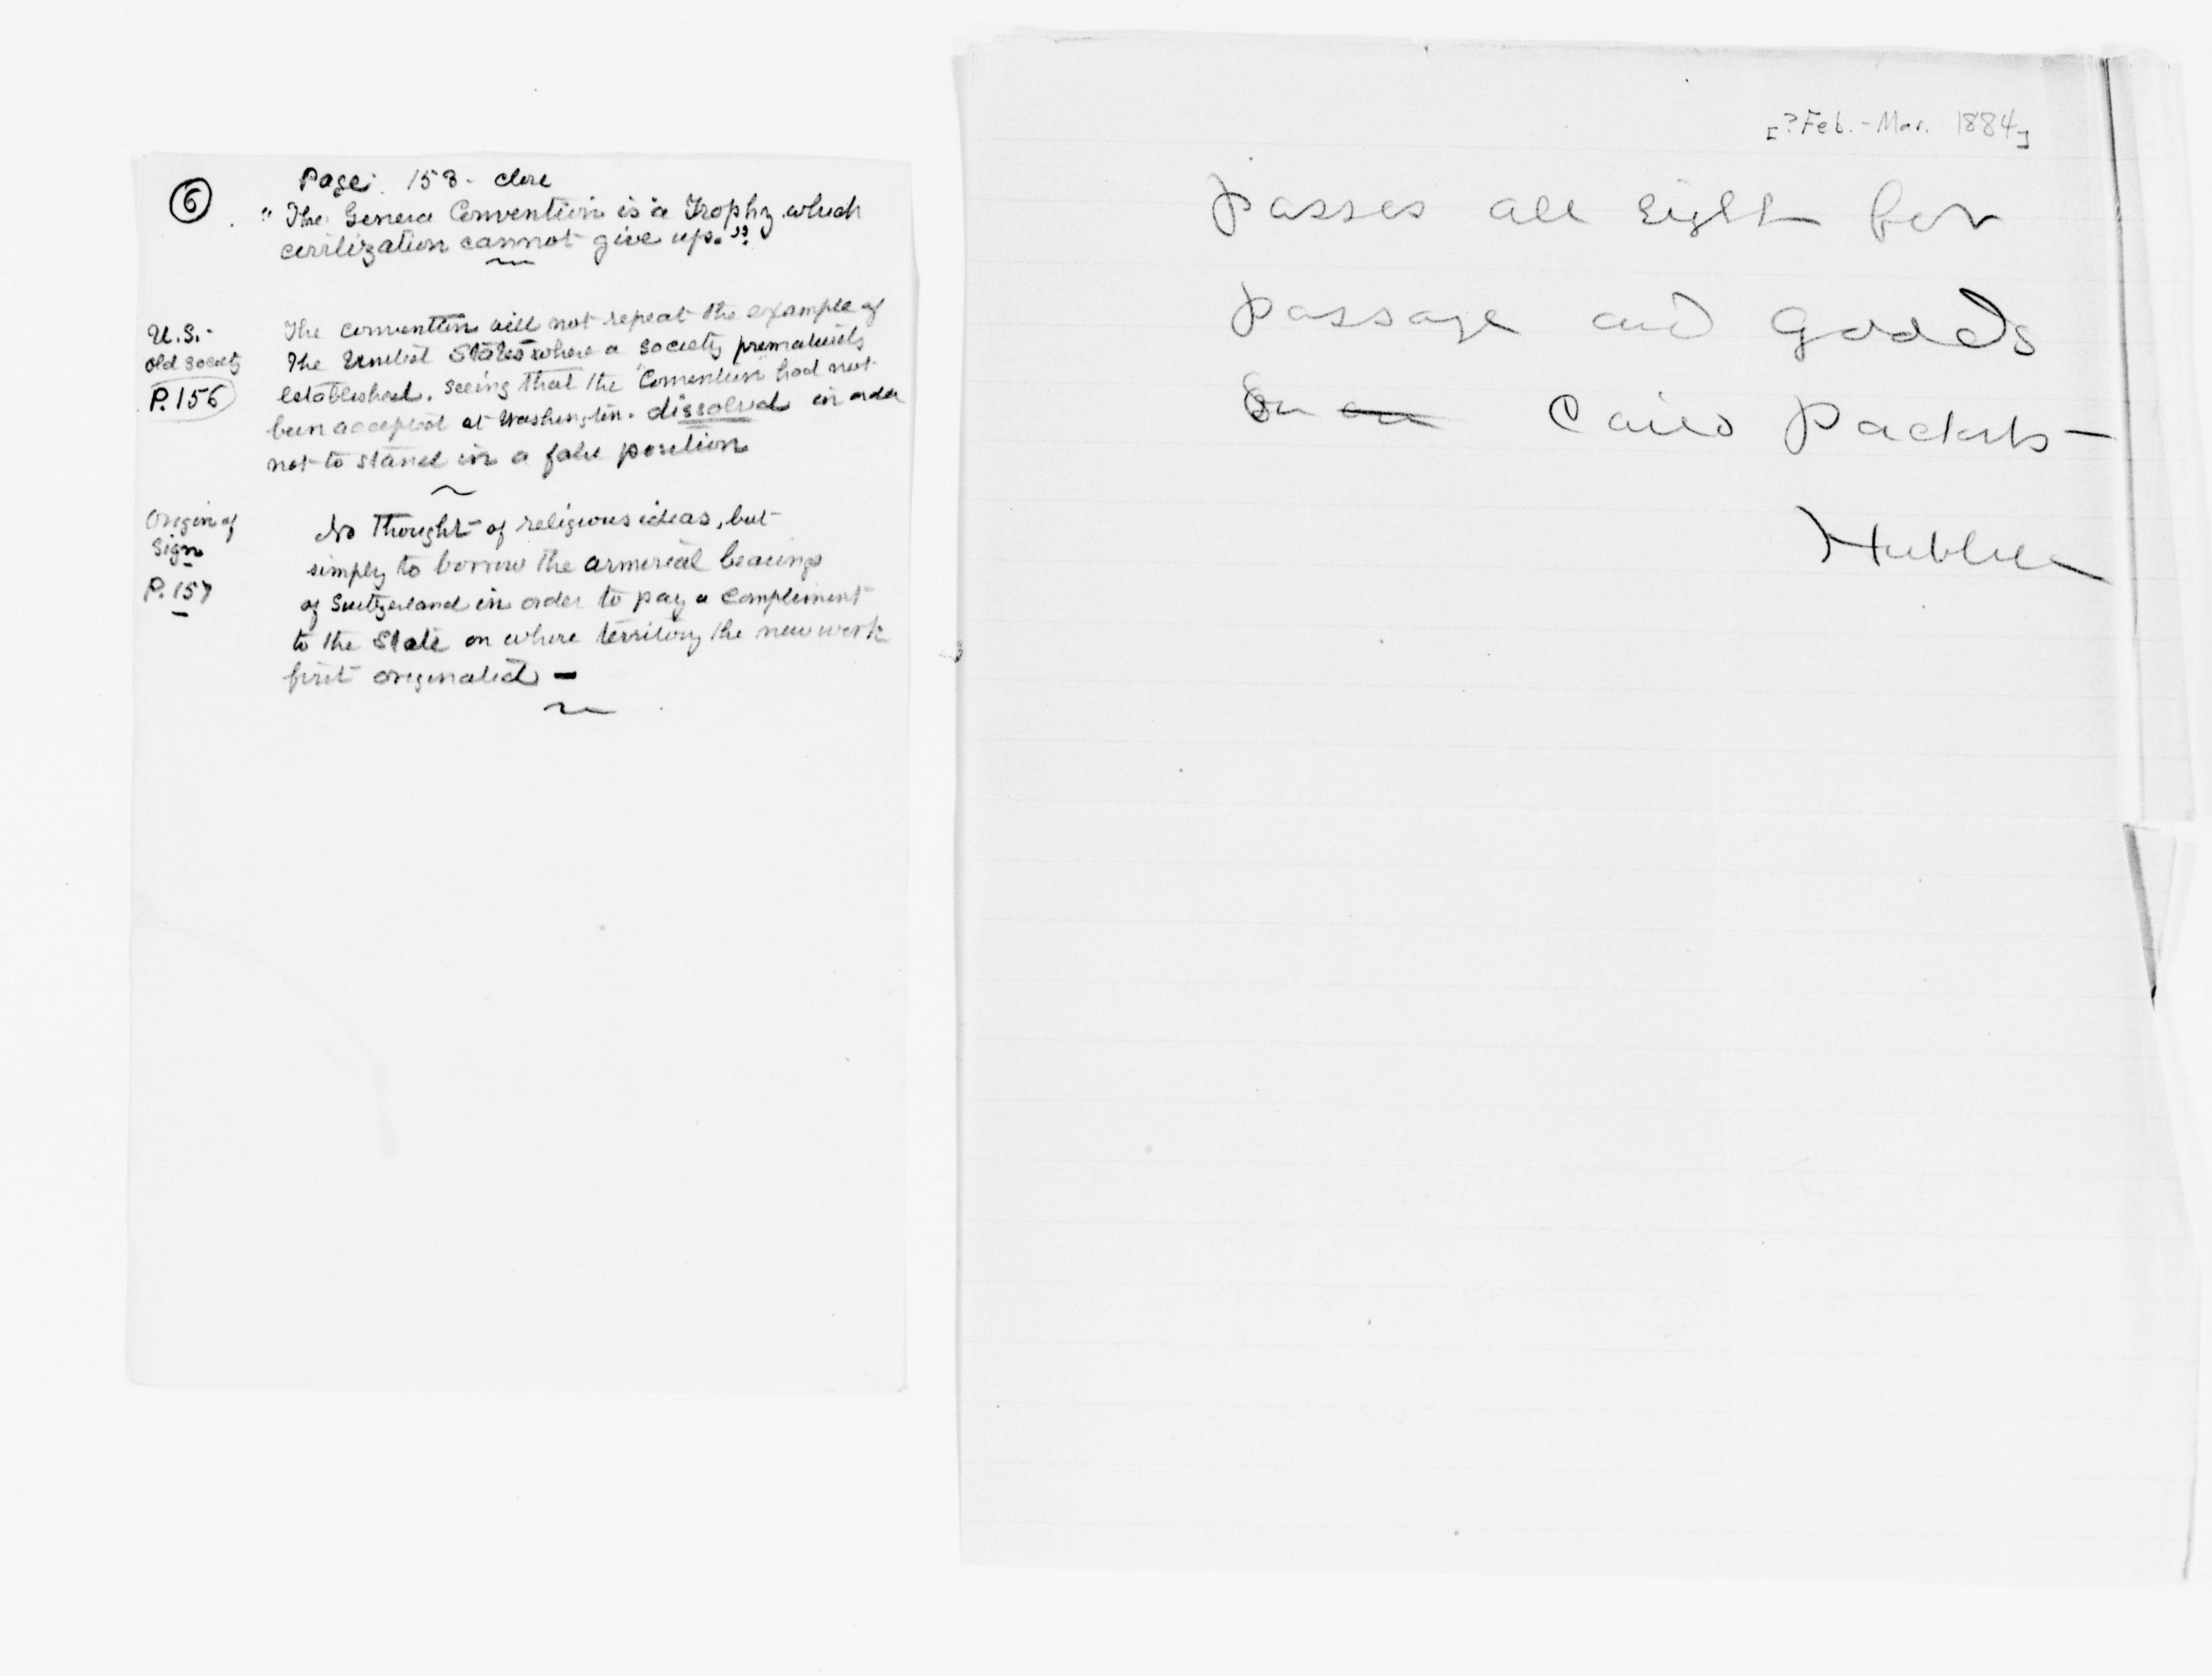 6
Page. 158. close
"The Geneva Convention is a Trophy which
civilization cannot give up."
U.S.
old society
P. 156
The convention will not repeat the example of
The United States where a society prematurely
established, seeing that the "Convention" had not
been accepted at Washington. dissolved in order
not to stand in a false position
Origin of
Sign
P. 157
No Thought of religious ideas, but
simply to borrow the armorial bearings
of Switzerland in order to pay a compliment
to the State on whose territory the new work
first originated —
[?Feb. - Mar. 1884]
passes all right for
passage and goods
on Cairo Packets —
Hubbell